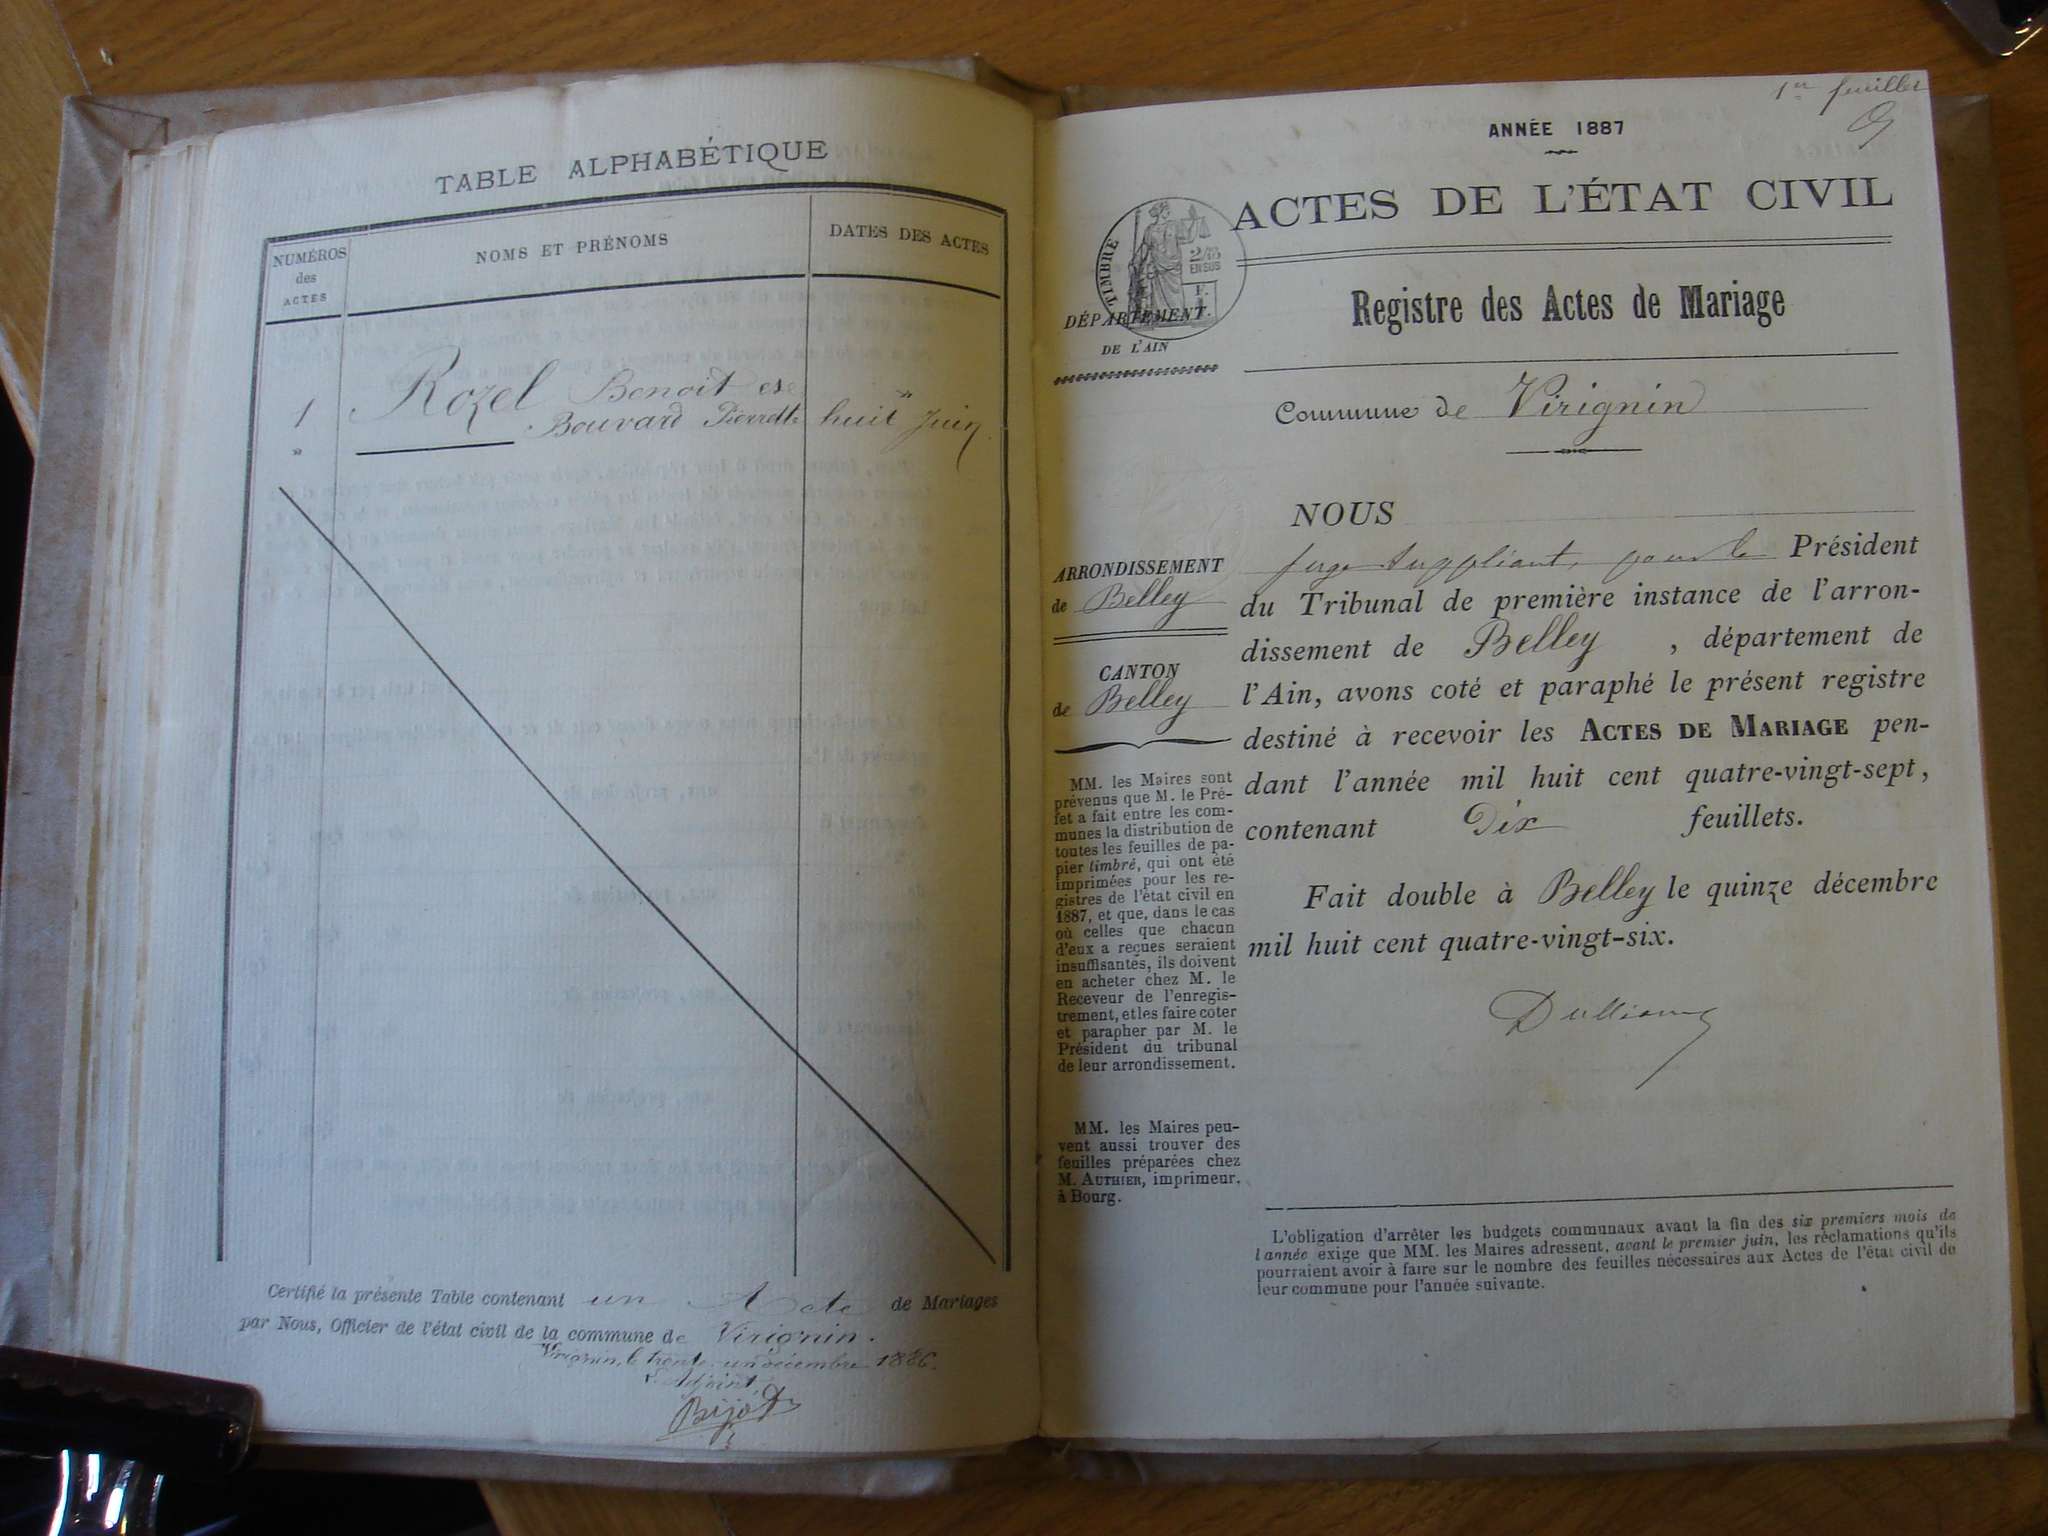 TABLE ALPHABÉTIQUE
NUMÉROS
des
ACTES
NOMS ET PRÉNOMS
DATES DES ACTES
1
Rozel Benoit et
Bouvard Pierrette
huit Juin
"
Certifié la présente Table contenant un Acte de Mariages
par Nous, Officier de l'état civil de la commune de Virignin.
Virignin, le trente un décembre 1886.
L'Adjoint,
Bijot
1er feuillet
ANNÉE 1887
ACTES DE L'ÉTAT CIVIL
TIMBRE
2/10
EN SUS
DÉPARTEMENT
DE L'AIN
Registre des Actes de Mariage
Commune de Virignin
ARRONDISSEMENT
de Belley
CANTON
de Belley
MM. les Maires sont
prévenus que M. le Pré-
fet a fait entre les com-
munes la distribution de
toutes les feuilles de pa-
pier timbré, qui ont été
imprimées pour les re-
gistres de l'état civil en
1887, et que, dans le cas
où celles que chacun
d'eux a reçues seraient
insuffisantes, ils doivent
en acheter chez M. le
Receveur de l'enregis-
trement, et les faire coter
et parapher par M. le
Président du tribunal
de leur arrondissement.
MM. les Maires peu-
vent aussi trouver des
feuilles préparées chez
M. AUTHIER, imprimeur,
à Bourg.
NOUS
Juge Suppléant, pour le Président
du Tribunal de première instance de l'arron-
dissement de Belley, département de
l'Ain, avons coté et paraphé le présent registre
destiné à recevoir les ACTES DE MARIAGE pen-
dant l'année mil huit cent quatre-vingt-sept,
contenant Dix feuillets.
Fait double à Belley le quinze décembre
mil huit cent quatre-vingt-six.
L'obligation d'arrêter les budgets communaux avant la fin des six premiers mois de
l'année exige que MM. les Maires adressent, avant le premier juin, les réclamations qu'ils
pourraient avoir à faire sur le nombre des feuilles nécessaires aux Actes de l'état civil de
leur commune pour l'année suivante.